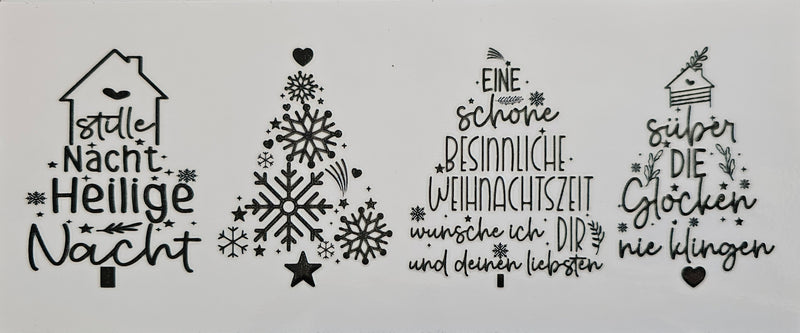 stille
Nacht
Heilige
Nacht
EINE
schöne
BESINNLICHE
WEIHNACHTSZEIT
wünsche ich DIR
und deinen liebsten
süßer
DIE
Glocken
nie klingen